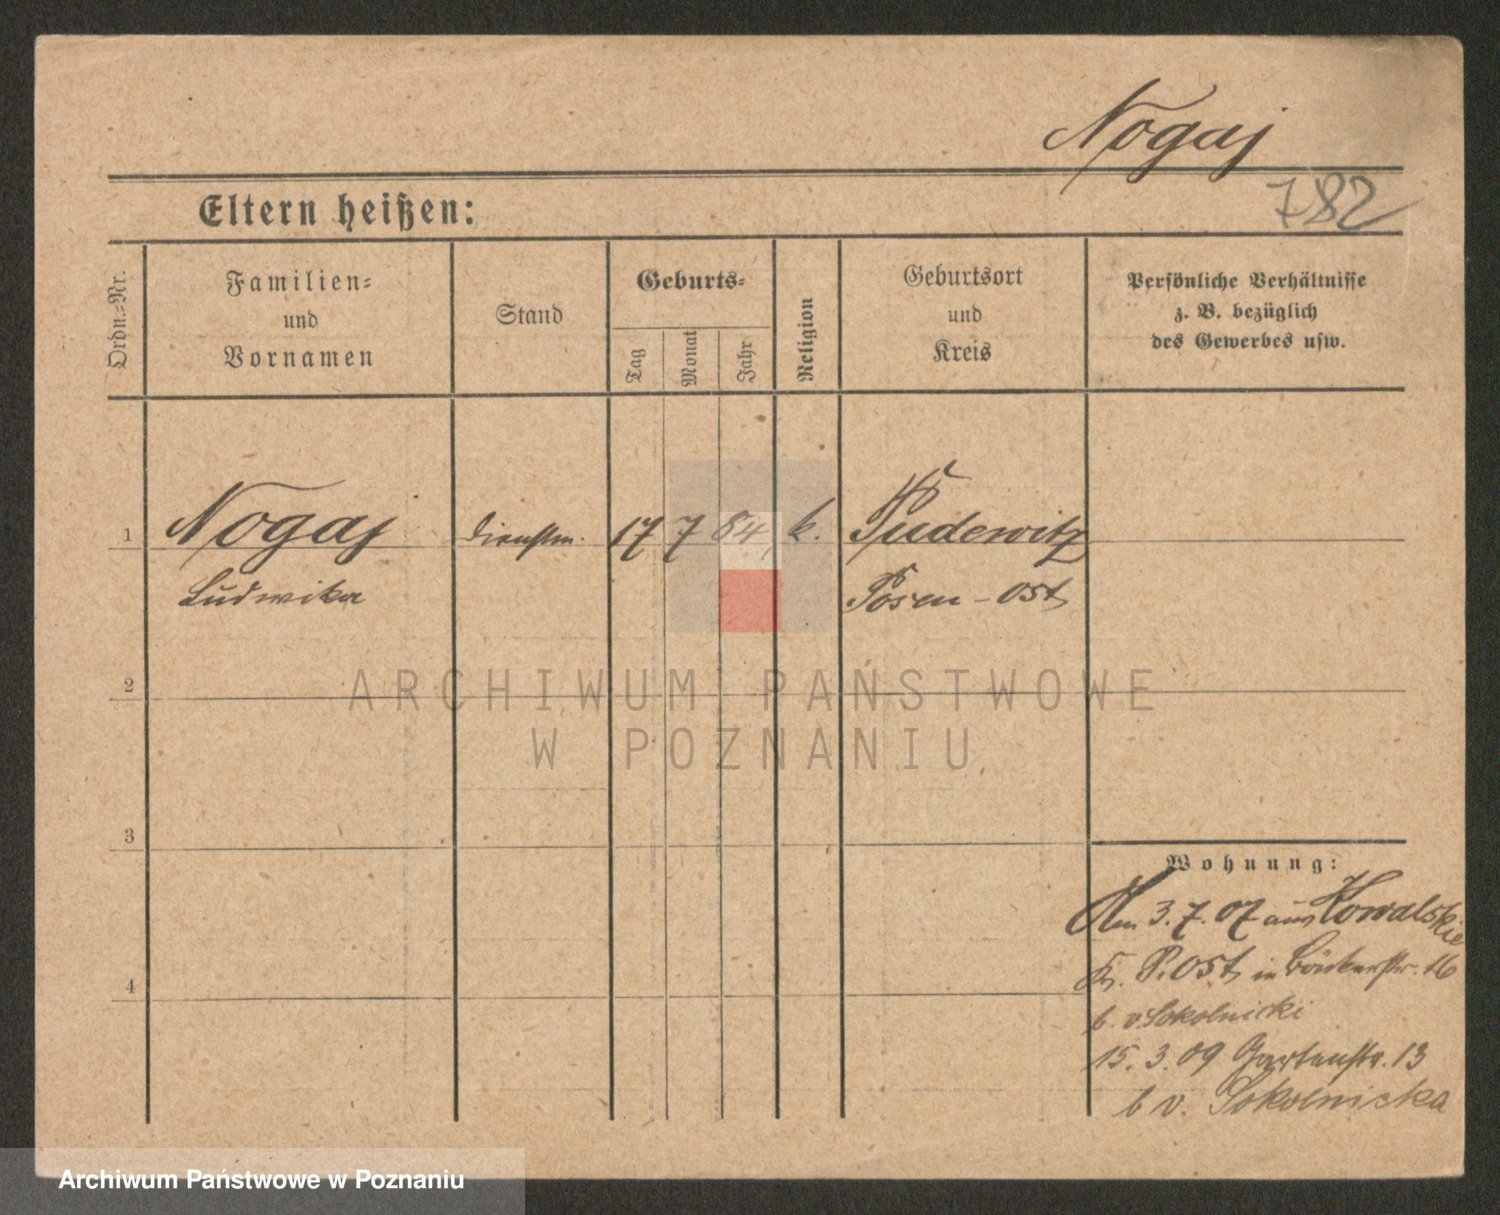 Nogaj
782
Eltern heißen:
Ordn.-Nr.
Familien-
und
Vornamen
Stand
Geburts-
Tag
Monat
Jahr
Religion
Geburtsort
und
Kreis
Persönliche Verhältnisse
z. B. bezüglich
des Gewerbes usw.
1 Nogaj dienstm. 17 7 84, k. Pudewitz
Ludwika Posen-Ost
2
3
4
Wohnung:
Am 3.7.07 aus Kowalskie
Kr. P. Ost in Bäckerstr. 16
b. v. Sokolnicki
15.3.09 Gartenstr. 13
b v. Sokolnicka
ARCHIWUM PAŃSTWOWE
W POZNANIU
Archiwum Państwowe w Poznaniu